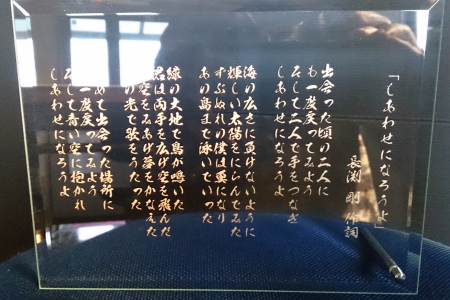 「しあわせになろうよ」
長渕 剛 作詞
出会った頃の二人に
も一度戻ってみよう
そして二人で手をつなぎ
しあわせになろうよ
海の広さに負けないように
輝しい太陽をにらんでみた
ずぶぬれの僕は重になり
あの島まで泳いでいった
緑の大地で鳥が鳴いた
君は両手を広げ空を飛んだ
空をみあげ夢をかなえた
の光で歌をうたった
めて出会った場所に
一度戻ってみよう
して青い空に抱かれ
しあわせになろうよ